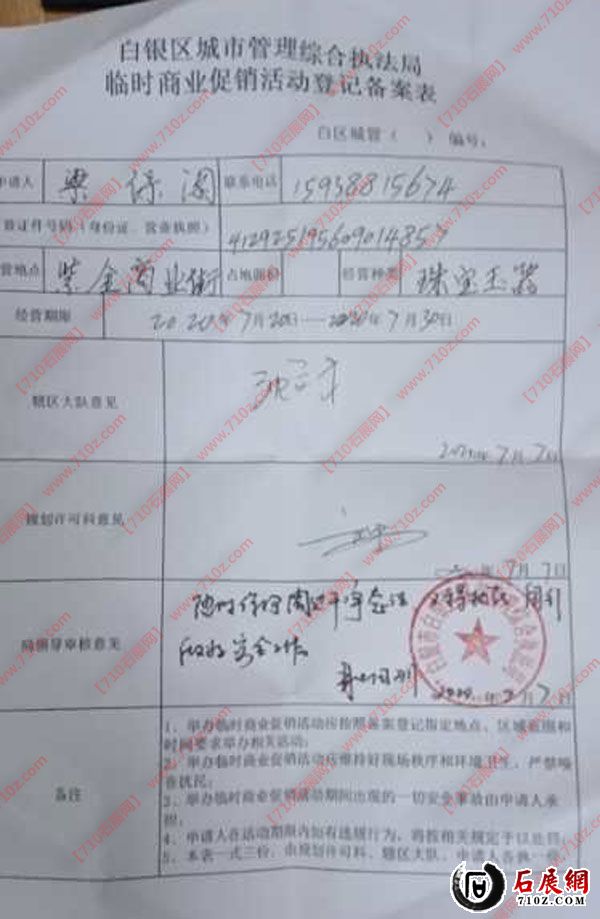 白银区城市管理综合执法局
临时商业促销活动登记备案表
白区城管（ ）编号：
申请人 梁保国 联系电话 15938815674
营证件号码（身份证、营业执照）
营地点 紫金商业街 占地面积 经营种类 珠宝玉器
经营期限 2020年7月20日—2020年7月30日
辖区大队意见
2020年7月7日
规划许可科意见
年7月7日
局领导审核意见
2020年7月7日
备注
1、举办临时商业促销活动应按照备案登记指定地点、区域范围和
时间要求举办相关活动；
2、举办临时商业促销活动应维持好现场秩序和环境卫生，严禁噪
音扰民；
3、举办临时商业促销活动期间出现的一切安全事故由申请人承
担；
4、申请人在活动期限内如有违规行为，将按相关规定予以处罚；
5、本表一式三份，由规划许可科、辖区大队、申请人各执一份
【710石展网】www.710z.com
石展網
710Z.COM